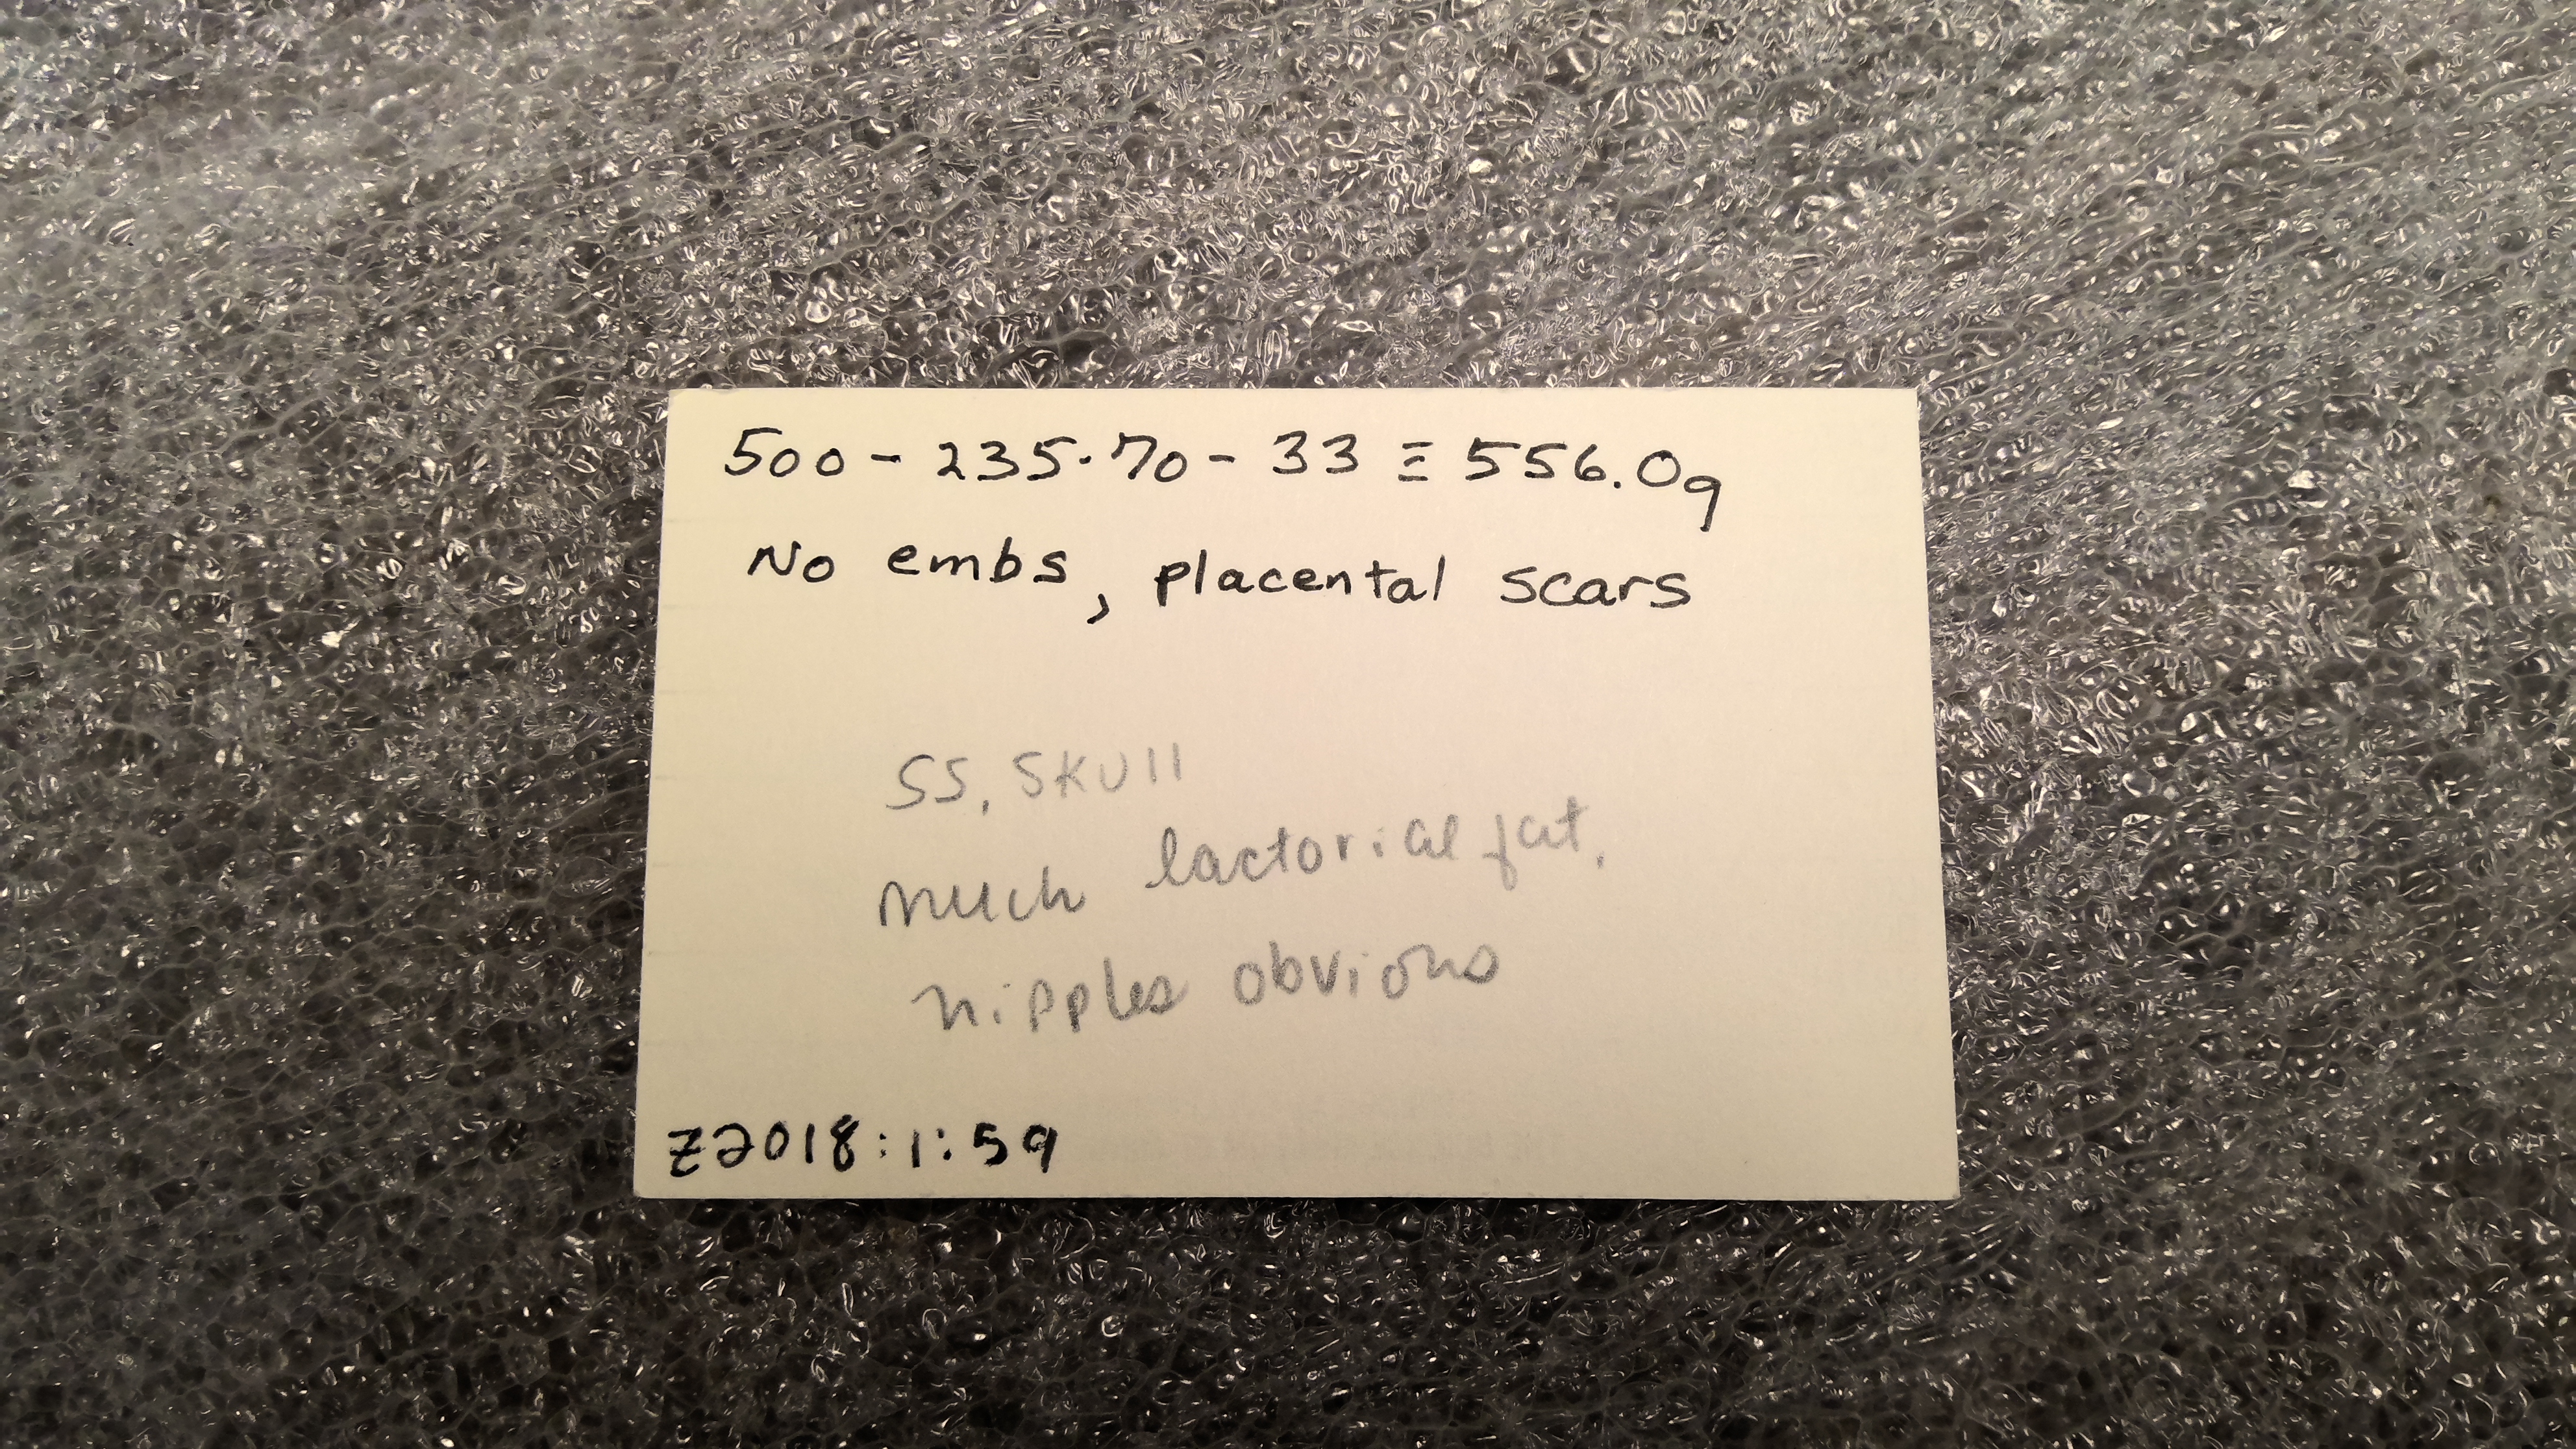 500 - 235·70 - 33 ≡ 556.0g
No embs, placental scars
SS, SKUll
much lactorial fat.
nipples obvious
Z2018:1:59